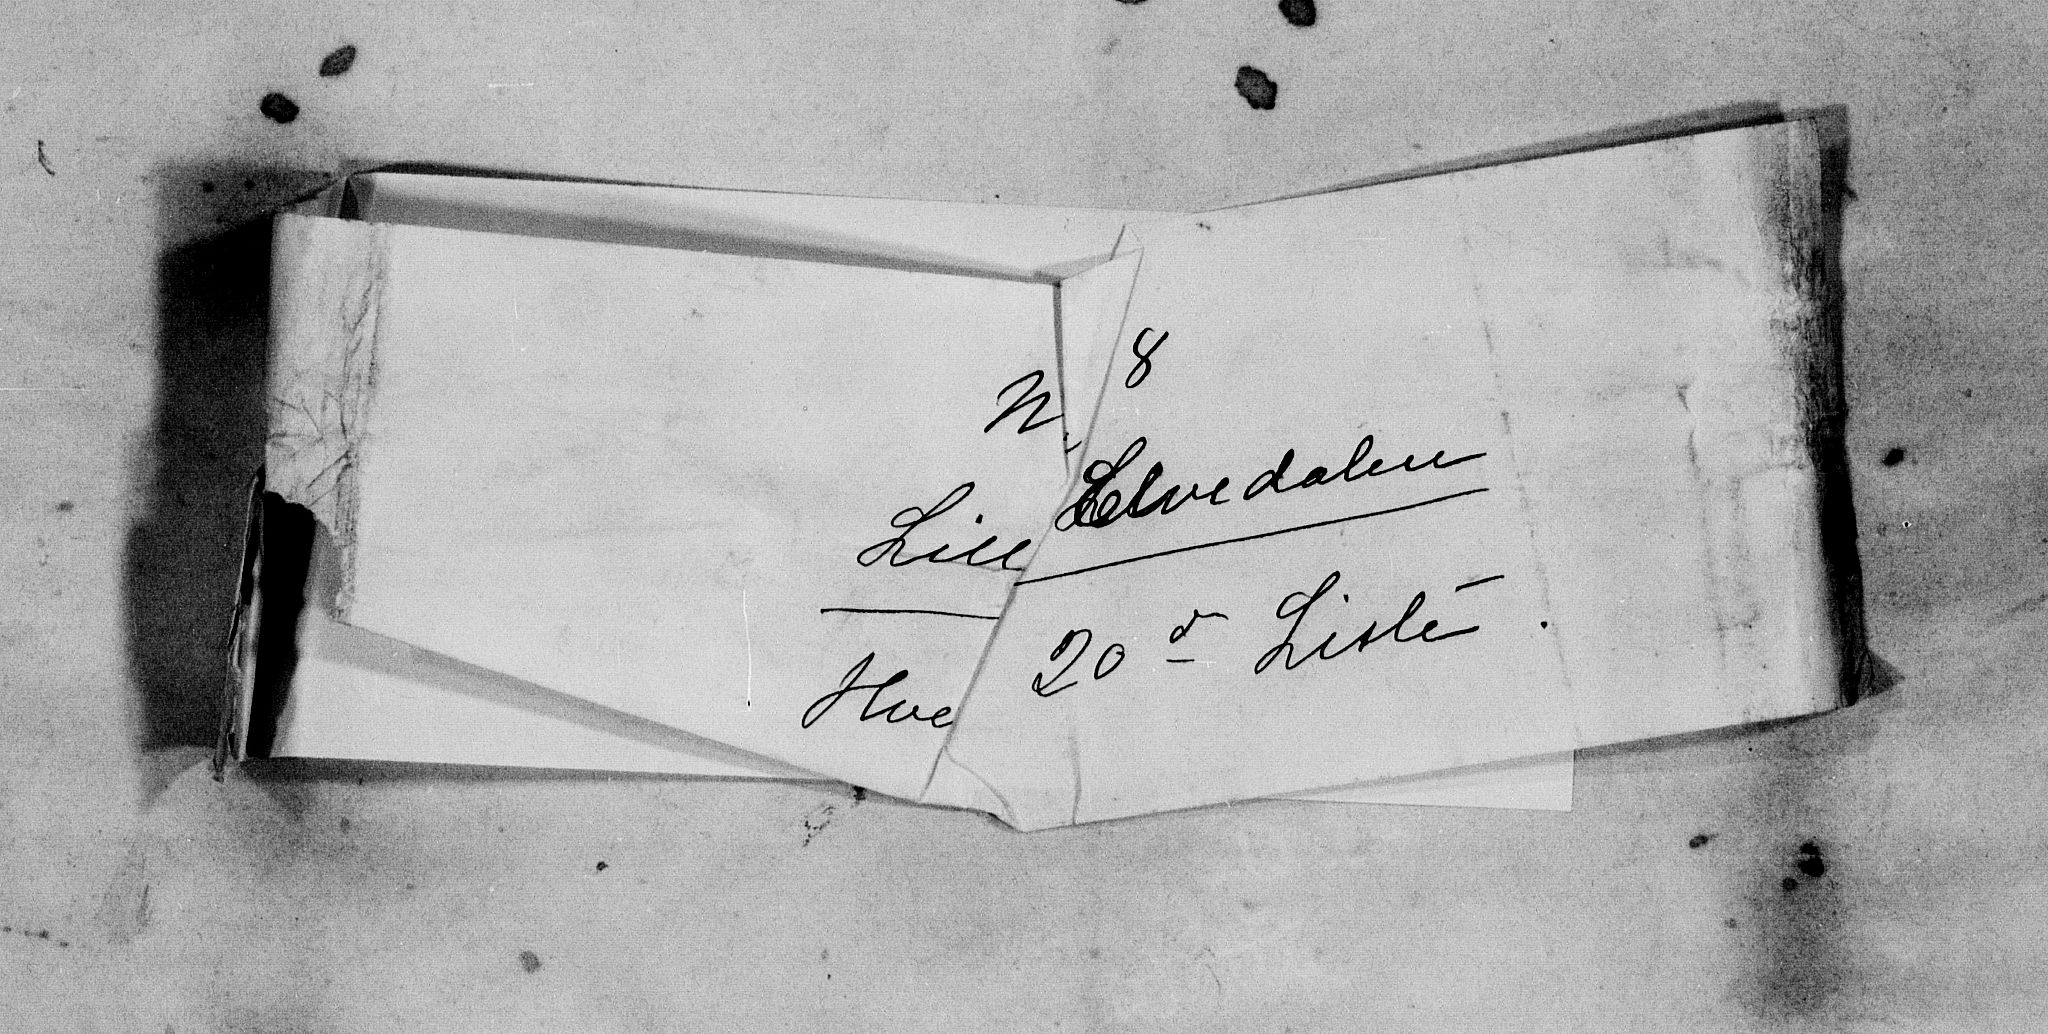 N. 8
Lille Elvedalen
Hve 20 de Liste.